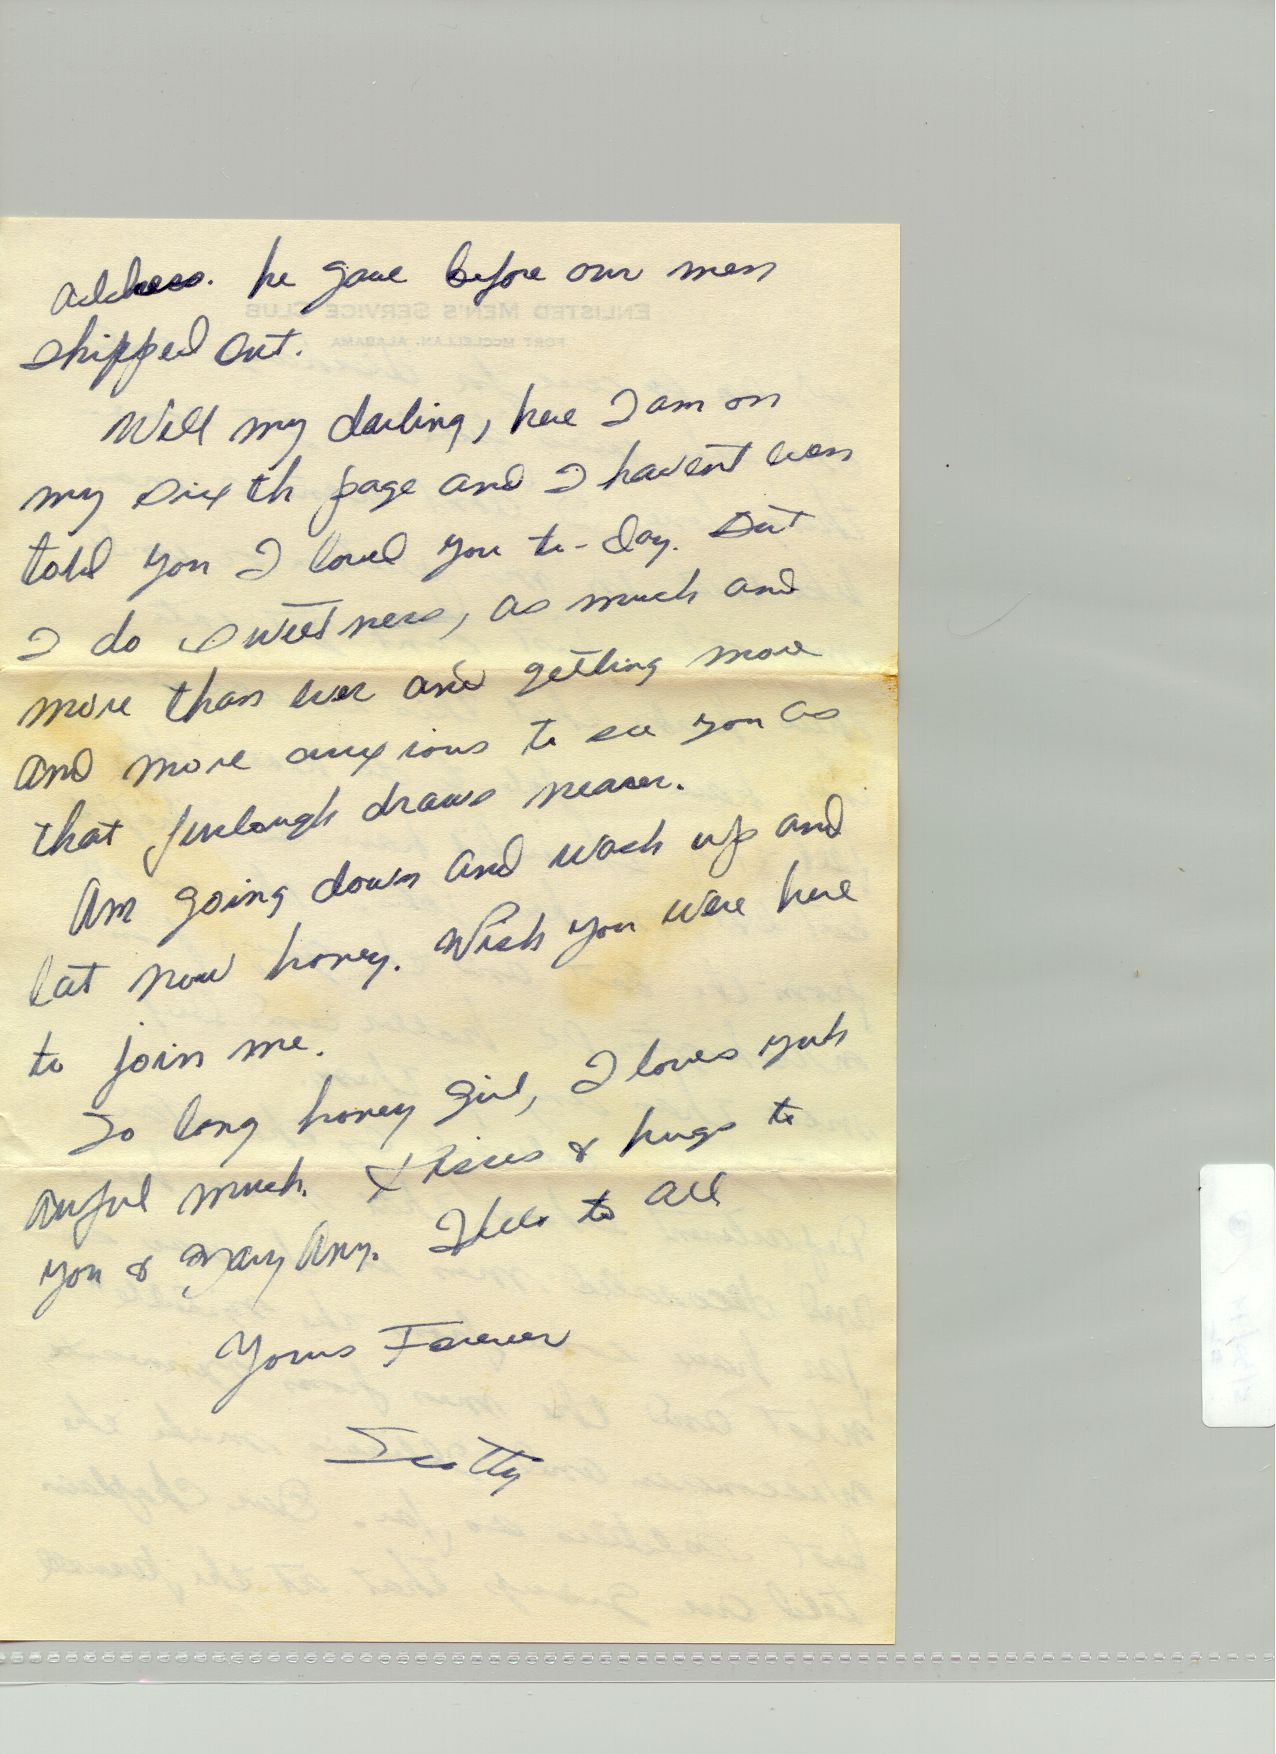 address. he gave before our men
shipped out.
Well my darling, here I am on
my sixth page and I haven't even
told you I loved you to-day. But
I do sweetness, as much and
more than ever and getting more
and more anxious to see you as
that furlough draws nearer.
Am going down and wash up and
eat now honey. Wish you were here
to join me.
So long honey girl, I loves yuh
awful much. Kisses & hugs to
you & Mary Ann. Hello to all
Yours Forever
Scotty
ENLISTED MEN'S SERVICE CLUB
FORT MCCLELLAN, ALABAMA